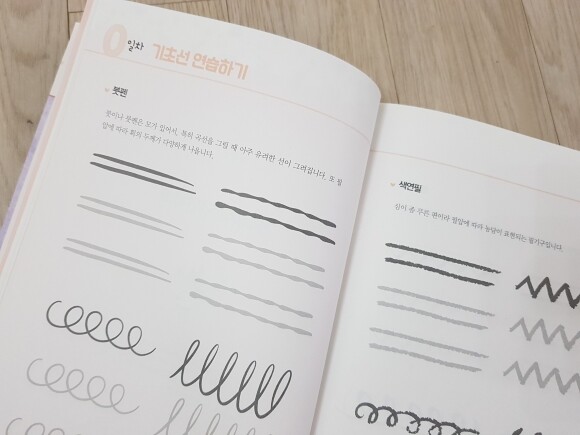 0일차 기초선 연습하기
붓펜
붓이나 붓펜은 모가 있어서, 특히 곡선을 그릴 때 아주 유려한 선이 그려집니다. 또 필
압에 따라 획의 두께가 다양하게 나옵니다.
색연필
심이 좀 무른 편이라 필압에 따라 농담이 표현되는 필기구입니다.